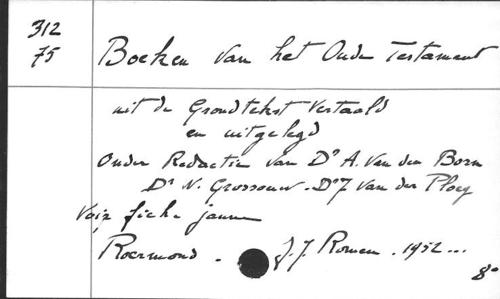 312
75
Boeken van het Oude Testament
uit de Grondtekst vertaald
en uitgelegd
onder Redactie van Dr A. van den Born
Dr N. Grossouw - Dr J van der Ploeg
Voir fiche jaune
Roermond . J.J. Romen . 1952 ...
8°